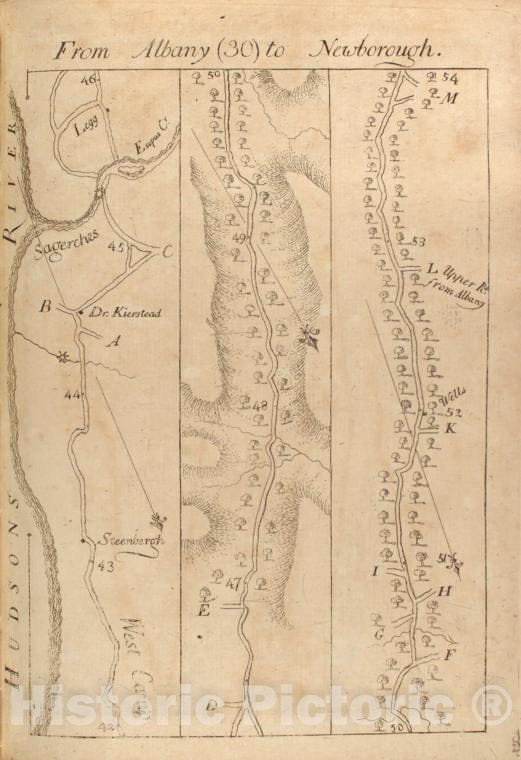 From Albany (30) to Newborough.
46
Legg
Esopus C.
RIVER
Sagerches
45
C
B
Dr. Kierstead
A
44
Steenbergh
43
HUDSONS
West Camp
42
50
49
48
47
E
D
54
M
53
L Upper R.
from Albany
Wells
52
K
51
I
H
G
F
50
Historic Pictoric ®